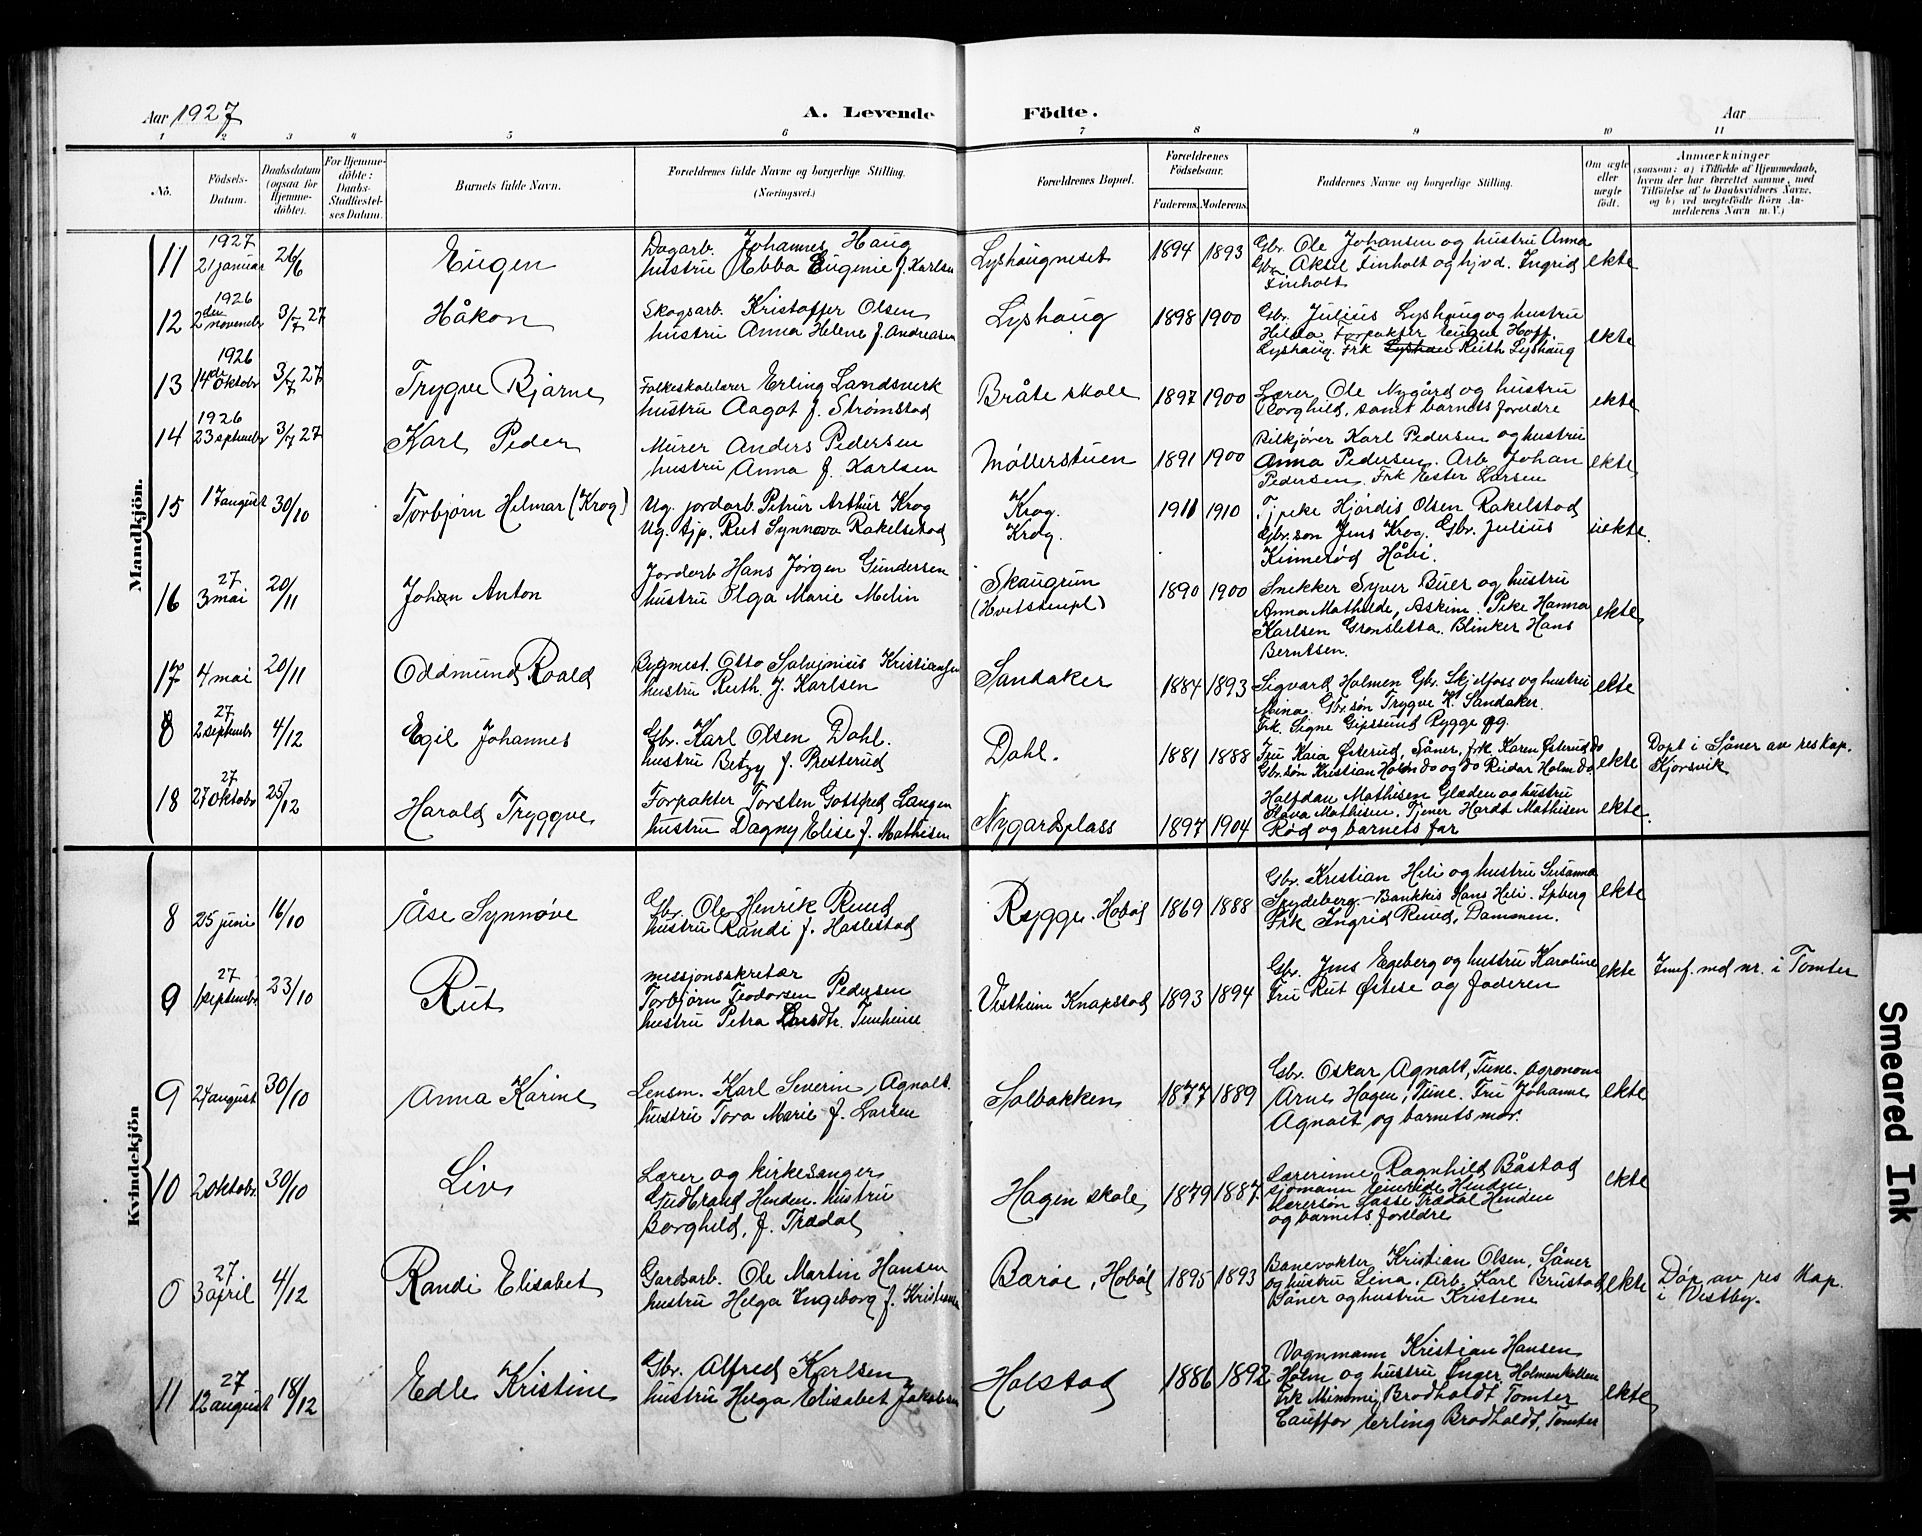 Aar 1927
A. Levende Födte.
Aar
1 2 3 4 5 6 7 8 9 10 11
No.
Födsels-Datum.
Daabsdatum (ogsaa for Hjemme-döbte).
For Hjemme-döbte: Daabs-Stadfæstelses Datum.
Barnets fulde Navn.
Forældrenes fulde Navne og borgerlige Stilling. (Næringsvei.)
Forældrenes Bopæl.
Forældrenes Födselsaar.
Faderens. Moderens.
Faddernes Navne og borgerlige Stilling.
Om ægte eller uægte födt.
Anmærkninger
(saasom: a) i Tilfælde af Hjemmedaab, hvem der har forrettet samme, med Tilföielse af to Daabsvidners Navne, og b) ved uægtefödte Börn Anmelderens Navn m. V.)
Mandkjön.
11 1927 21 januar 26/6 Eugen
Dagarb. Johannes Haug
hustru Ebba Eugenie f. Karlsen
Lyshaugneset 1894 1893
Gbr. Ole Johansen og hustru Anna
Gbr Aksel Finholt og hjvd. Ingrid
Finholt
ekte
12 1926 2den novembr 3/7 27 Håkon
Skogsarb. Kristoffer Olsen
hustru Anna Helene f. Andreasen
Lyshaug 1898 1900
Gbr. Julius Lyshaug og hustru
Hilda Forpakter Eugen Hoff
Lyshaug. Frk Lyshau Ruth Lyshaug
ekte
13 1926 14de oktobr 3/7 27 Trygve Bjarne
Folkeskolelærer Erling Landsverk
hustru Aagot f. Strømstad
Bråte skole 1897 1900
Lærer Ole Nygård og hustru
Borghild, samt barnets foreldre
ekte
14 1926 23 septembr 3/7 27 Karl Peder
Murer Anders Pedersen
hustru Anna f. Karlsen
Møllerstuen 1891 1900
Bilkjører Karl Pedersen og hustru
Anna Pedersen. Arb Johan
Pedersen. Frk Ester Larsen
ekte
15 17 august 30/10 Torbjørn Helmar (Krog)
Ug. jordarb. Petrur Arthur Krog
Ug. tjp. Rut Synnøva Rakelsetad
Krog.
Krog. 1911 1910
Tjpike Hjørdis Olsen Rakelstad
Gbr.søn Jens Krog. Gbr. Julius
Kinnerød Håbi.
uekte.
16 27 3 mai 20/11 Johan Anton
Jordarb Hans Jørgen Gundersen
hustru Olga Marie Melin
Skaugrun
(Hvitstenpl) 1890 1900
Snekker Syver Buer og hustru
Anna Mathilde, Askim. Pike Hanna
Karlsen Grønsletta. Blinker Hans
Berntsen.
ekte
17 4 mai 20/11 Oddmund Roald
Bygmest. Otto Salvjnius Kristiansen
hustru Ruth f. Karlsen
Sandaker 1884 1893
Sigvard Holmen Gbr. Skjelfoss og hustru
Mina. Gbr.søn Trygve K. Sandaker.
Frk. Signe Gipssund Rygge pg.
ekte
8 27 2 septembr 4/12 Egil Johannes
Gbr. Karl Olsen Dahl.
hustru Betzy f. Presterud
Dahl. 1881 1888
Fru Kaia Østerud, Såner, frk Karen Østerud do
Gbr.søn Kristian Holm do og do Reidar Holm do
ekte
Døpt i Såner av res kap.
Kjorsvik
18 27 27 oktobr 25/12 Harald Tryggve
Forpakter Torsten Gottfred Langen
hustru Dagny Elise f. Mathisen
Nygardsplass 1897 1904
Halfdan Mathisen Glæden og hustru
Mathisen, Tjener Hardt Mathisen
Rød og barnets far
ekte.
Kvindekjön
8 25 juni 16/10 Åse Synnøve
Gbr. Ole Henrik Ruud
hustru Randi f. Haslestad
Rygge. Hobøl 1869 1888
Gbr. Kristian Heli og hustru Susanna
Spydeberg. Bankkis Hans Heli. Spberg
Frk Ingrid Ruud, Dammen.
ekte
9 27 1 septembr 23/10 Rut
messjonssekretær
Torbjørn Teodorsen Pedersen
hustru Petra Larsdtr. Tunheim
Vestheim Knapstad 1893 1894
Gbr. Jens Egeberg og hustru Karoline
Fru Rut Østese og faderen
ekte
Innf. med nr. i Tomter
9 24 august 30/10 Anna Karine
Lensm. Karl Severin Agnalt.
hustru Tora Marie f. Larsen
Solbakken 1877 1889
Gbr. Oskar Agnalt, Tune. agronom
Arne Hagen, Tune. Fru Johanne
Agnalt og barnets mor.
ekte
10 2 oktobr. 30/10 Liv
Lærer og kirkesanger
Gudbrand Henden. hustru
Borghild, f. Trædal
Hagen skole 1879 1887
Lærerinne Ragnhild Båstad
sjømann Einride Henden.
Lærersøn Lasse Trædal Henden
og barnets foreldre
ekte
0 27 3 april 4/12 Randi Elisabet
Gardsarb. Ole Martin Hansen
hustru Helga Ingeborg f. Kristiansen
Barøe, Hobøl 1895 1893
Banevokter Kristian Olsen, Såner
og hustru Lina. Arb. Karl Brustad
Såner og hustru Kristene
ekte
Døp. av res Kap.
i Vestby.
11 27 12 august 18/12 Edle Kristine
Gbr. Alfred Karlsen
hustru Helga Elisabet Jakobsen
Holstad 1886 1892
Vognmann Kristian Hansen
Holm og hustru Inger Holmenkollen
Frk Mimmi Brodholdt, Tomter
Cauffør Erling Brodholdt, Tomter
ekte
Smeared Ink